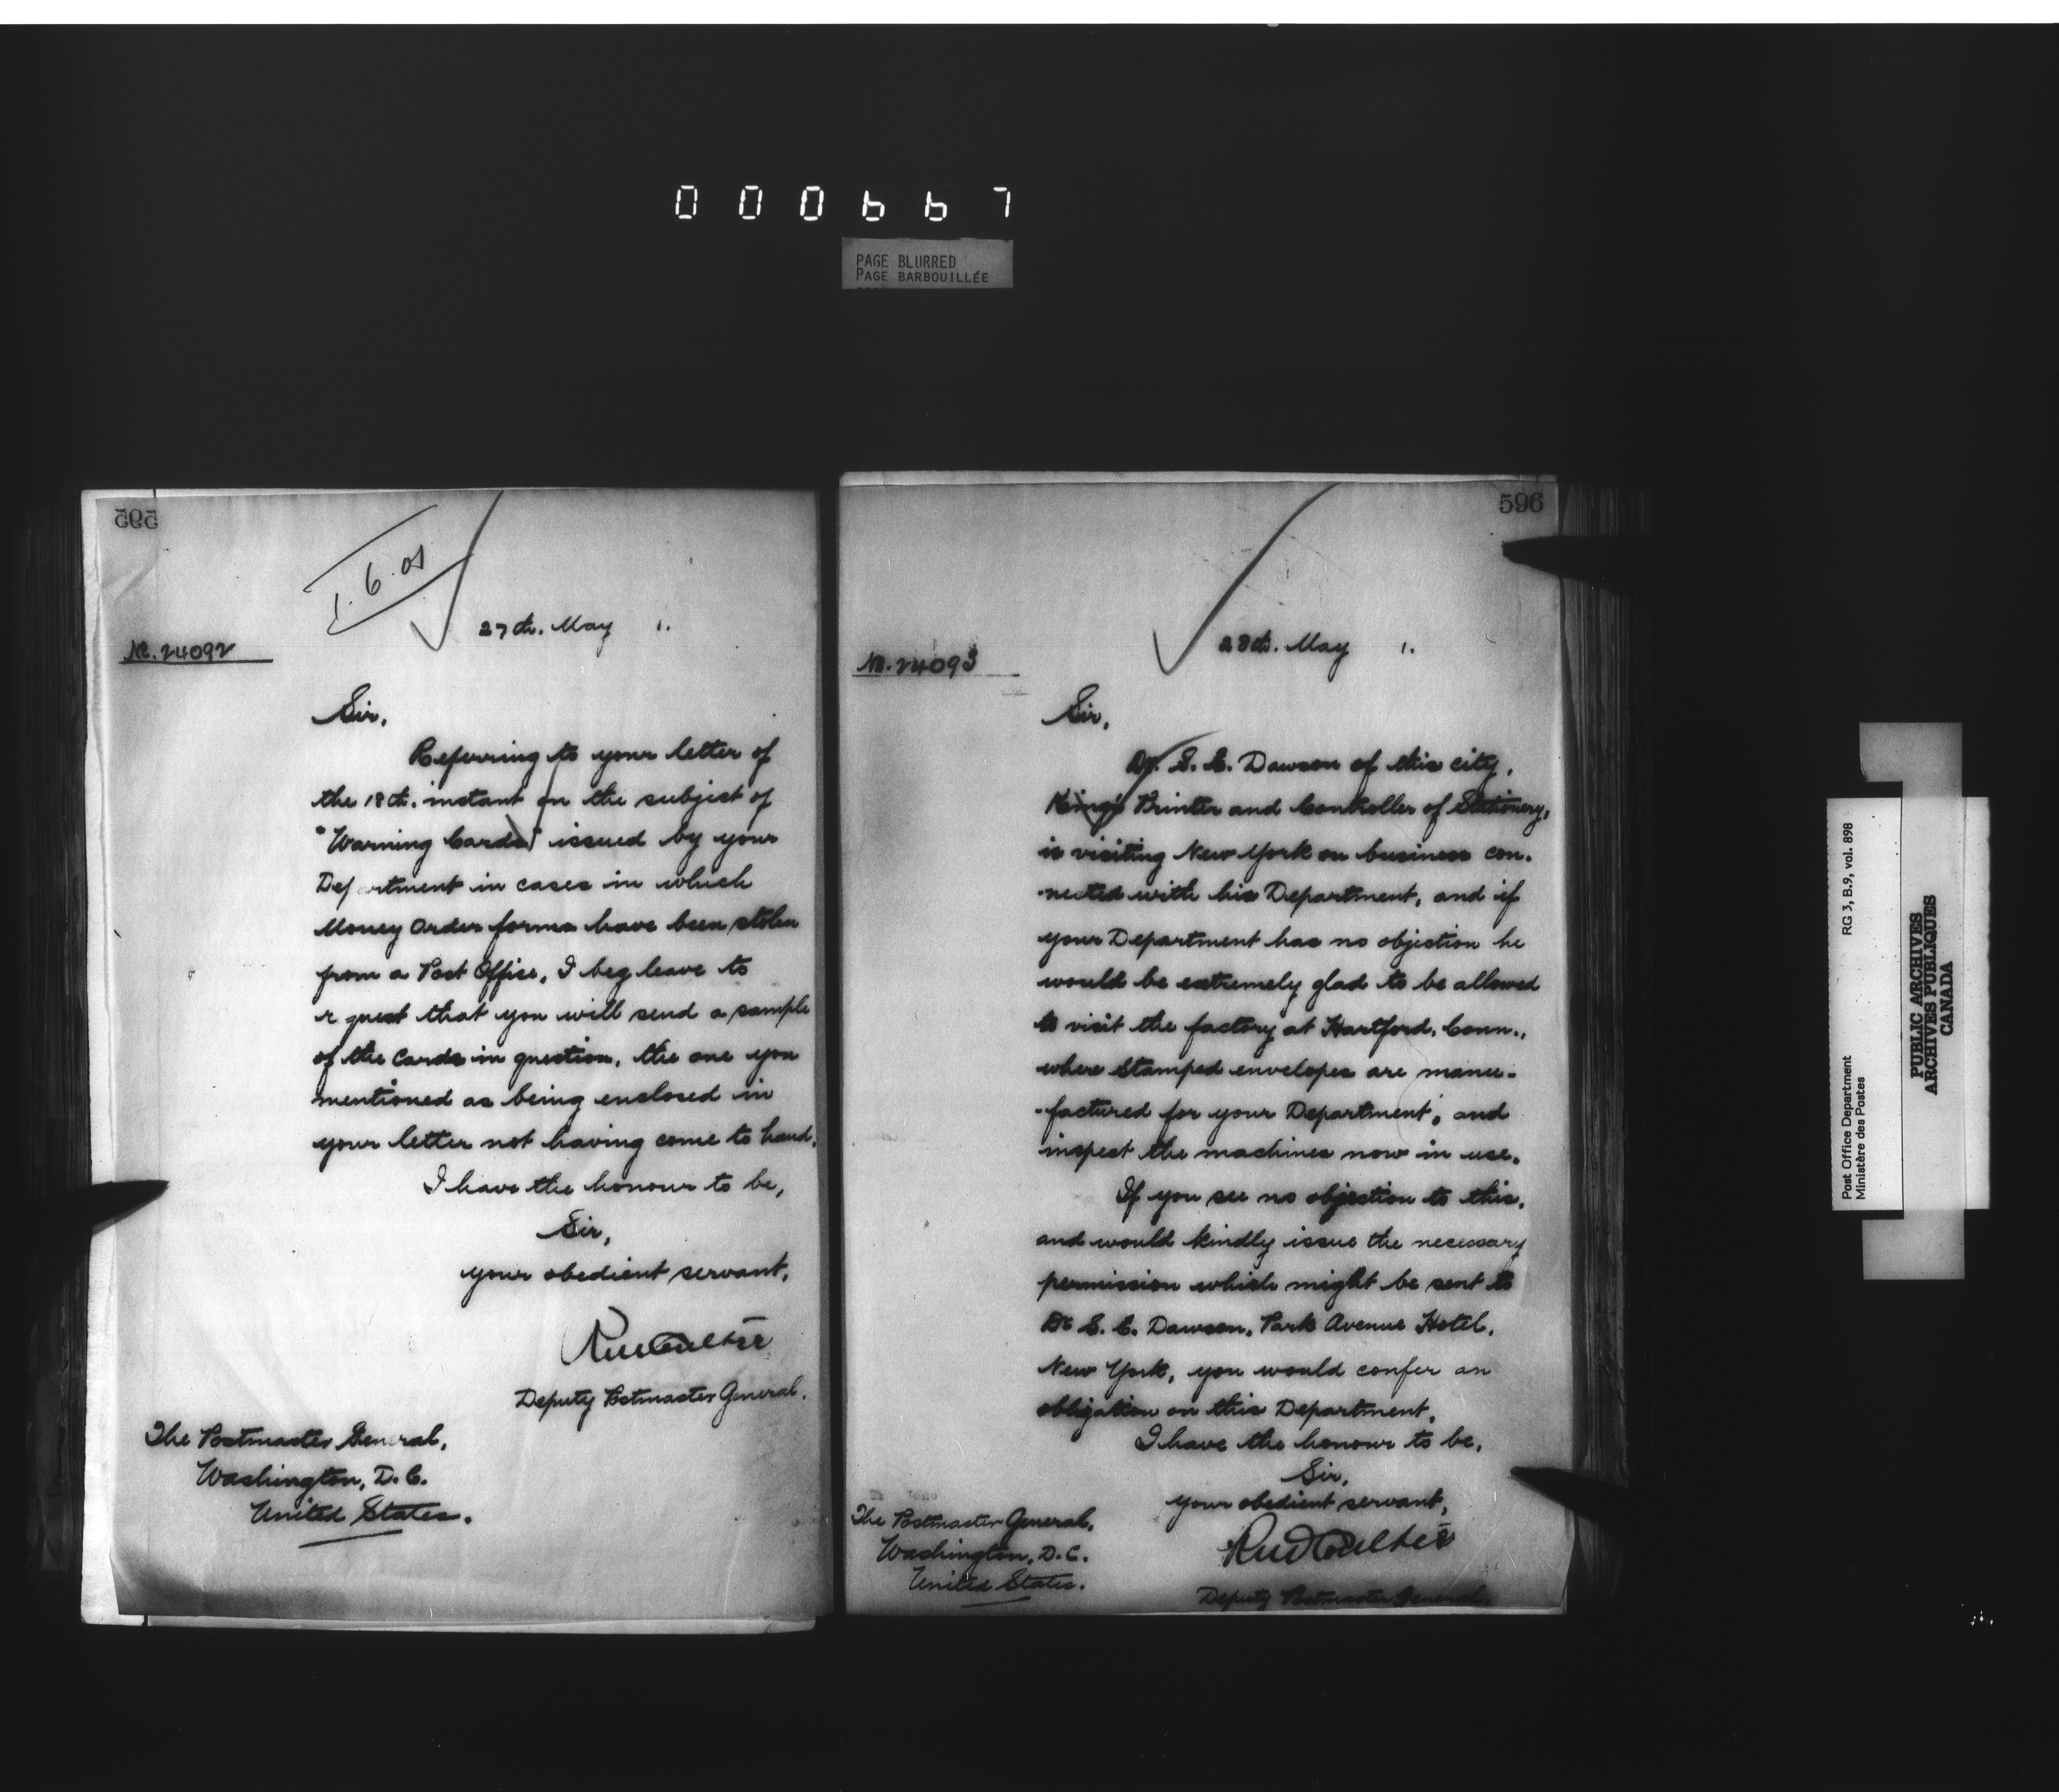 000667
PAGE BLURRED
PAGE BARBOUILLÉE
595
1.6.01
27th. May 1.
No. 24092
Sir,
Referring to your letter of
the 18th. instant on the subject of
"Warning Cards" issued by your
Department in cases in which
Money Order forms have been stolen
from a Post Office, I beg leave to
r quest that you will send a sample
of the Cards in question, the one you
mentioned as being enclosed in
your letter not having come to hand.
I have the honour to be,
Sir,
your obedient servant,
RM Coulter
Deputy Postmaster General.
The Postmaster General,
Washington, D.C.
United States.
596
28th. May 1.
No. 24093
Sir,
Dr. S. E. Dawson of this city,
King's Printer and Controller of Stationery,
is visiting New York on business con-
-nected with his Department, and if
your Department has no objection he
would be extremely glad to be allowed
to visit the factory at Hartford, Conn.,
where Stamped envelopes are manu-
-factured for your Department, and
inspect the machines now in use.
If you see no objection to this,
and would kindly issue the necessary
permission which might be sent to
Dr S. E. Dawson, Park Avenue Hotel,
New York, you would confer an
obligation on this Department.
I have the honour to be,
Sir,
your obedient servant,
RM Coulter
Deputy Postmaster General.
The Postmaster General,
Washington, D.C.
United States.
Post Office Department RG 3, B.9, vol. 898
Ministère des Postes
PUBLIC ARCHIVES
ARCHIVES PUBLIQUES
CANADA